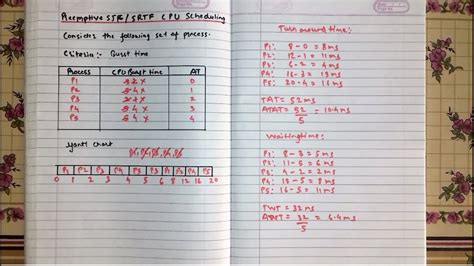 Preemptive SJF / SRTF CPU Scheduling
Consider the following set of process.
Criteria:- Burst time
Process CPU Burst time AT
P1 0
P2 1
P3 2
P4 3
P5 4
Gantt chart
P1 P2 P3 P4 P5 P3 P1 P2 P4 P5
0 1 2 3 4 5 6 8 12 16 20
Turnaround time:
P1: 8-0 = 8ms
P2: 12-1 = 11ms
P3: 6-2 = 4ms
P4: 16-3 = 13ms
P5: 20-4 = 16ms
TAT = 52ms
ATAT = 52 = 10.4ms
5
Waiting time:
P1: 8-3 = 5ms
P2: 11-5 = 6ms
P3: 4-2 = 2ms
P4: 13-5 = 8ms
P5: 16-5 = 11ms
TWT = 32ms
AWT = 32 = 6.4ms
5